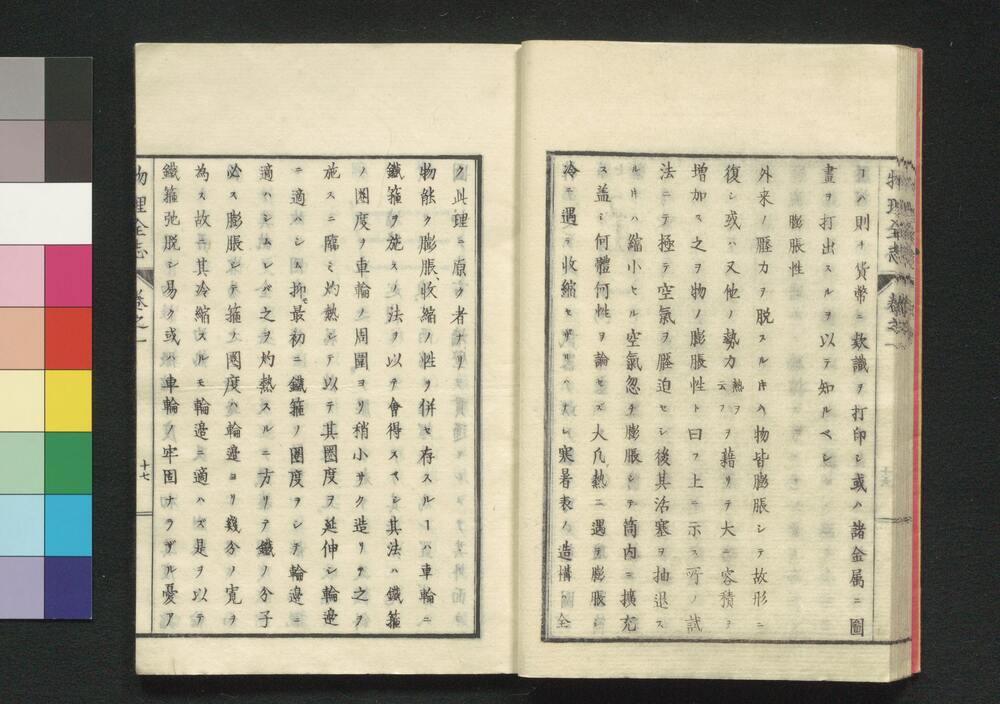 ヿハ則チ貨幣ニ欵識ヲ打印シ或ハ諸金属ニ圖
畫ヲ打出スルヲ以テ知ルベシ
膨脹性
外来ノ壓力ヲ脱スルヰハ物皆膨脹シテ故形ニ
復シ或ハ又他ノ勢力熱ヲ云フヲ藉リテ大ニ容積ヲ
増加ス之ヲ物ノ膨脹性ト曰フ上ニ示ス所ノ試
法ニテ極テ空氣ヲ壓迫セシ後其活塞ヲ抽退ス
ルヰハ縮小セル空氣忽チ膨脹シテ筒内ニ擴充
ス蓋シ何體何性ヲ論セズ大凡熱ニ遇テ膨脹シ
冷ニ遇テ收縮セザルハナシ寒暑表ノ造構ハ全
物理全志
ク此理ニ原ク者ナリ
物能ク膨脹、收縮ノ性ヲ併セ存スルヿハ車輪ニ
鐵箍ヲ施スノ法ヲ以テ會得スベシ其法ハ鐵箍
ノ圏度ヲ車輪ノ周圍ヨリ稍小サク造リテ之ヲ
施スニ臨ミ灼熱シテ以テ其圏度ヲ延伸シ輪邊
ニ適ハシム抑最初ニ鐵箍ノ圏度ヲシテ輪邊ニ
適ハシムレバ之ヲ灼熱スルニ方リテ鐵ノ分子
必ス膨脹シテ箍ノ圏度ハ輪邊ヨリ幾分ノ寛ヲ
為ス故ニ其冷縮スルモ輪邊ニ適ハズ是ヲ以テ
鐵箍弛脱シ易ク或ハ車輪ノ牢固ナラザル憂ア
物理全志 卷之一 十七